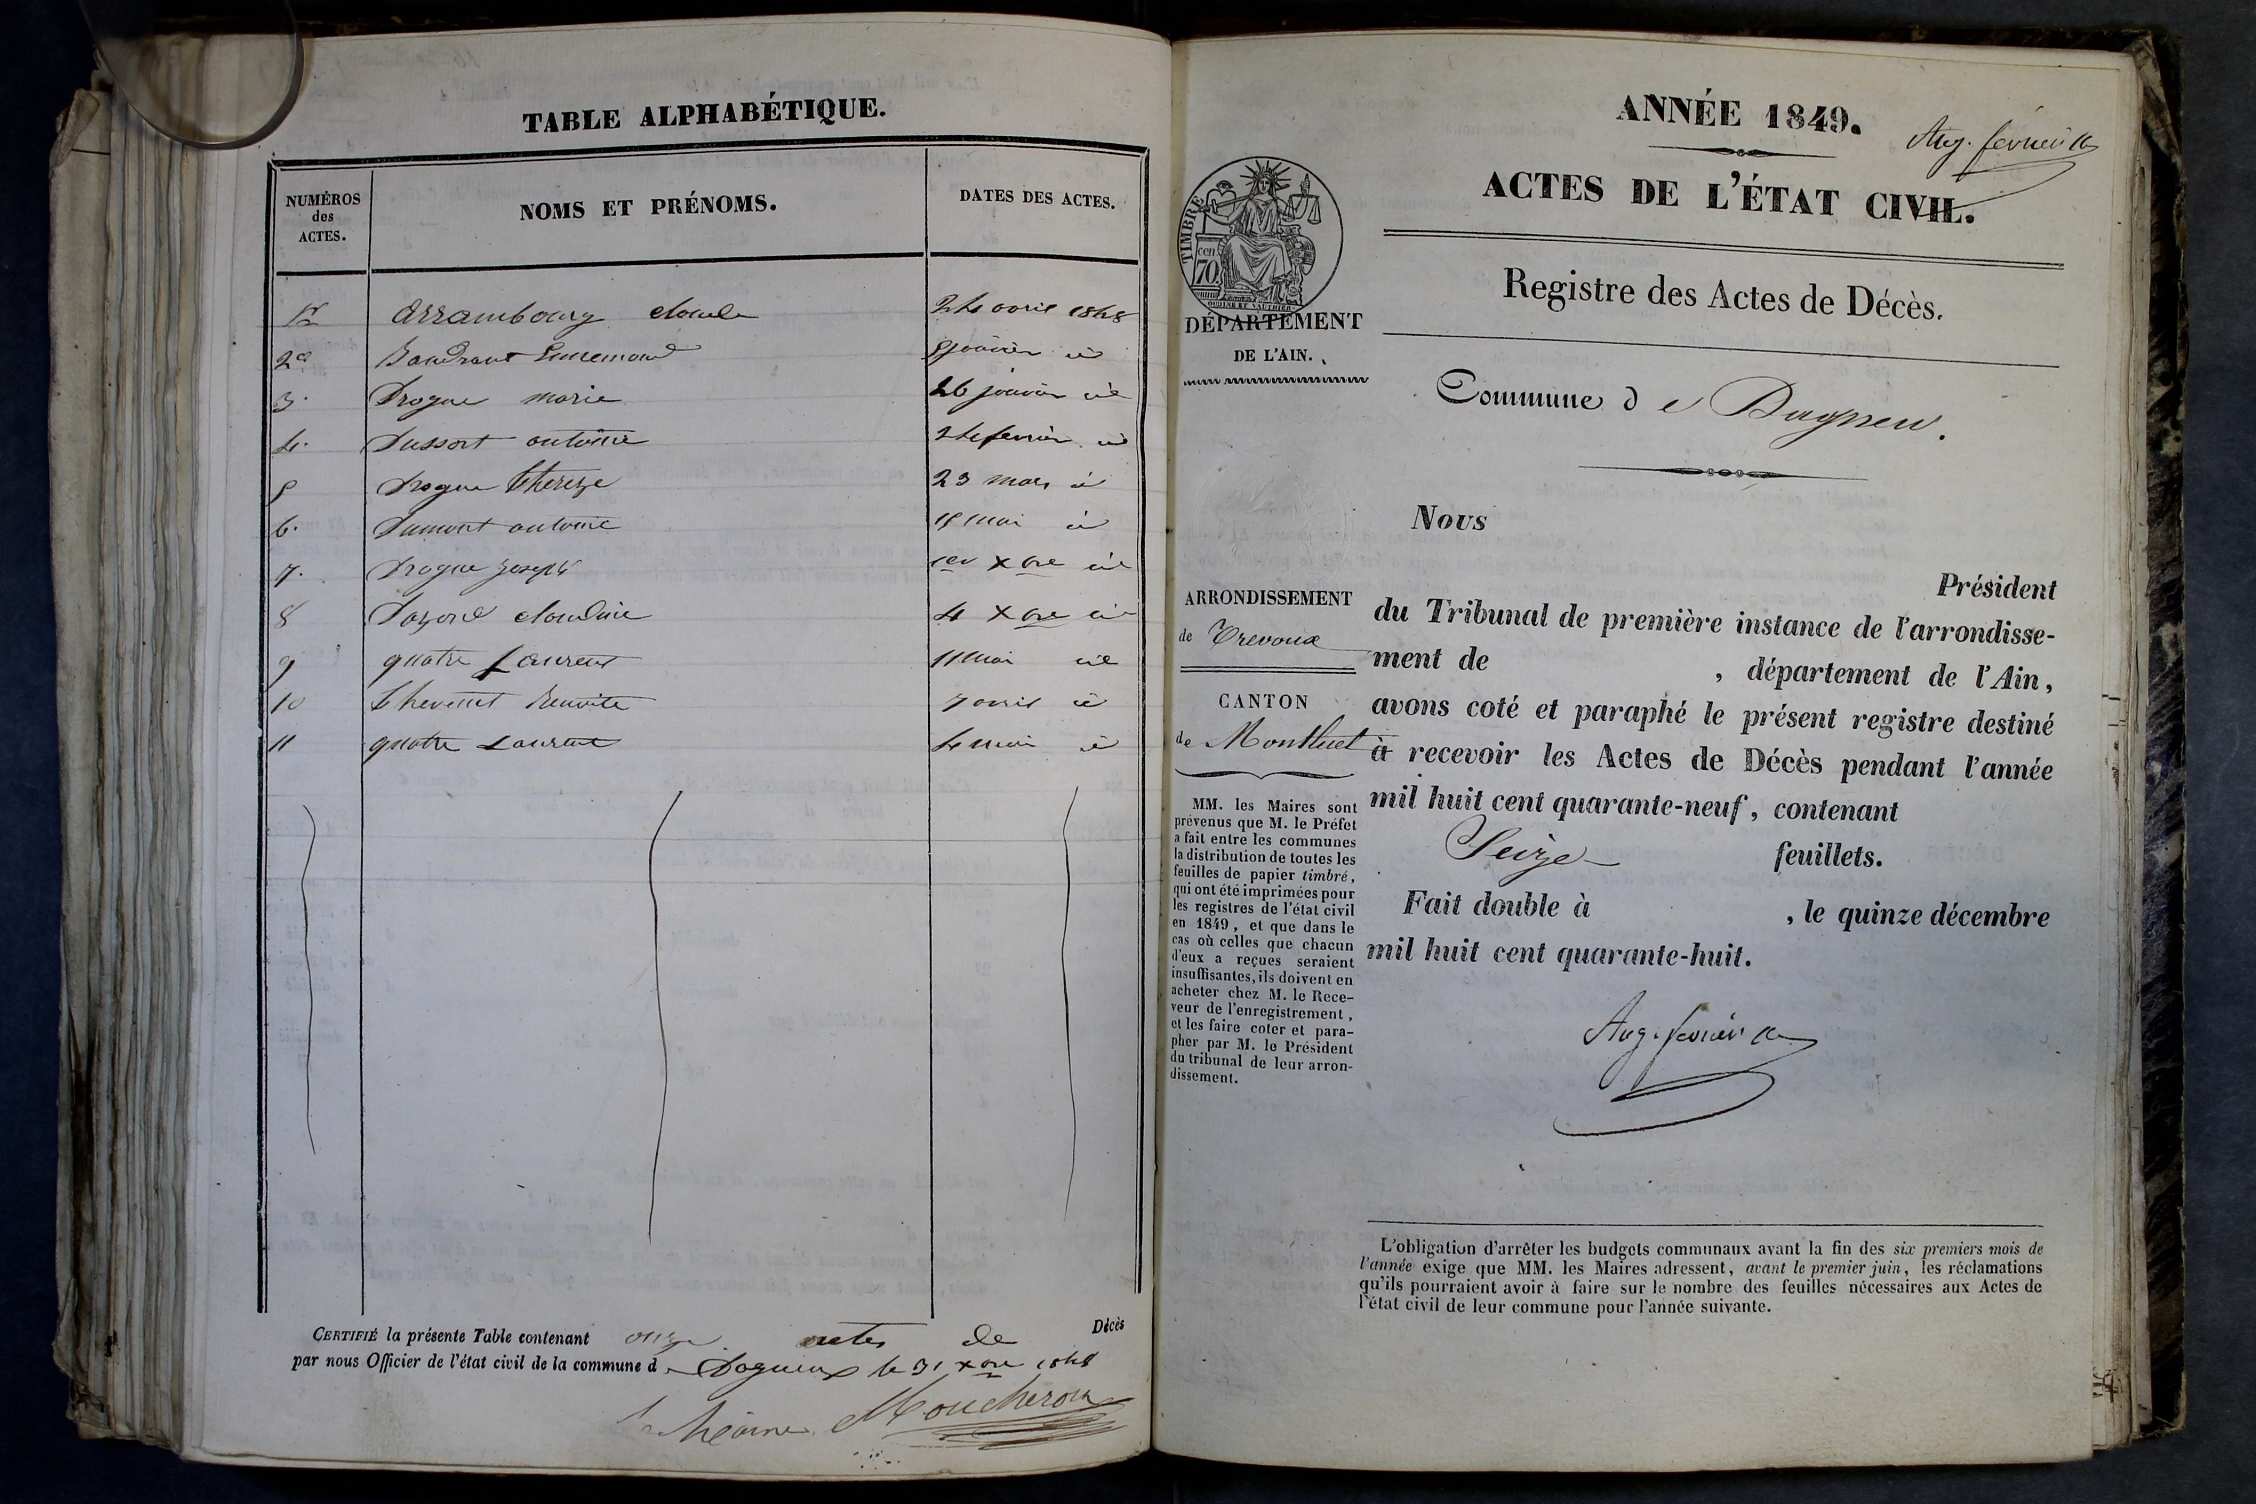 TABLE ALPHABÉTIQUE.
NUMÉROS
des
ACTES.
NOMS ET PRÉNOMS.
DATES DES ACTES.
1er Arrambourg claude 24 avril 1848
2e Baudrant Ennemond 8 janvier id
3. Drogue marie 26 janvier id
4. Dussort antoine 24 fevrier id
5 Drogue thereze 23 mars id
6. Dumont antoine 15 mai id
7. Drogue Joseph 1er xbre id
8 claudine 4 xbre id
9 quatre Laurent 11 mai id
10 Thevenet 7 avril id
11 quatre Laurent 4 mai id
CERTIFIÉ la présente Table contenant onze actes de Décès
par nous Officier de l'état civil de la commune de Dagneux le 31 xbre 1848
le Maire Moucheron
ANNÉE 1849.
Aug. février
ACTES DE L'ÉTAT CIVIL.
Registre des Actes de Décès.
TIMBRE
70
cen
DÉPARTEMENT
DE L'AIN.
Commune de Dagneu.
Nous
Président
du Tribunal de première instance de l'arrondisse-
ment de , département de l'Ain,
avons coté et paraphé le présent registre destiné
à recevoir les Actes de Décès pendant l'année
mil huit cent quarante-neuf, contenant
Seize feuillets.
Fait double à , le quinze décembre
mil huit cent quarante-huit.
Aug. février
ARRONDISSEMENT
de Trevoux
CANTON
de Montluel
MM. les Maires sont
prévenus que M. le Préfet
a fait entre les communes
la distribution de toutes les
feuilles de papier timbré,
qui ont été imprimées pour
les registres de l'état civil
en 1849, et que dans le
cas où celles que chacun
d'eux a reçues seraient
insuffisantes, ils doivent en
acheter chez M. le Rece-
veur de l'enregistrement,
et les faire coter et para-
pher par M. le Président
du tribunal de leur arron-
dissement.
L'obligation d'arrêter les budgets communaux avant la fin des six premiers mois de
l'année exige que MM. les Maires adressent, avant le premier juin, les réclamations
qu'ils pourraient avoir à faire sur le nombre des feuilles nécessaires aux Actes de
l'état civil de leur commune pour l'année suivante.